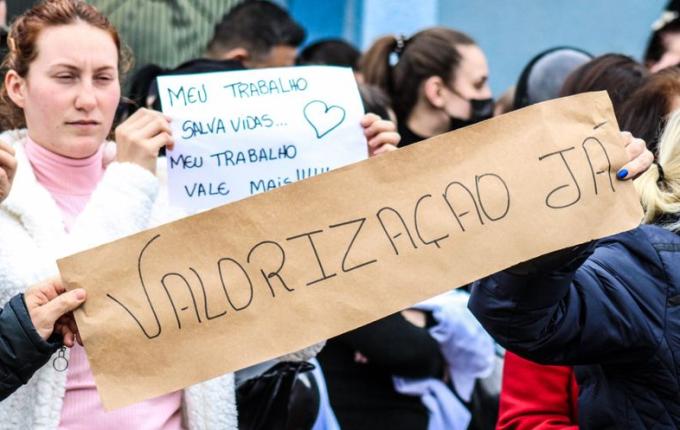 MEU TRABALHO
SALVA VIDAS...
MEU TRABALHO
VALE MAIS!!!!!
VALORIZAÇAO JÁ